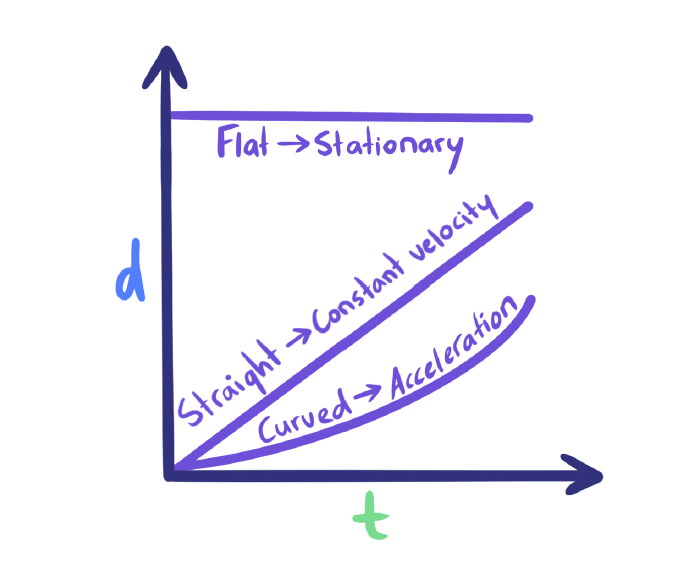 Flat → Stationary
Straight → Constant velocity
Curved → Acceleration
d
t